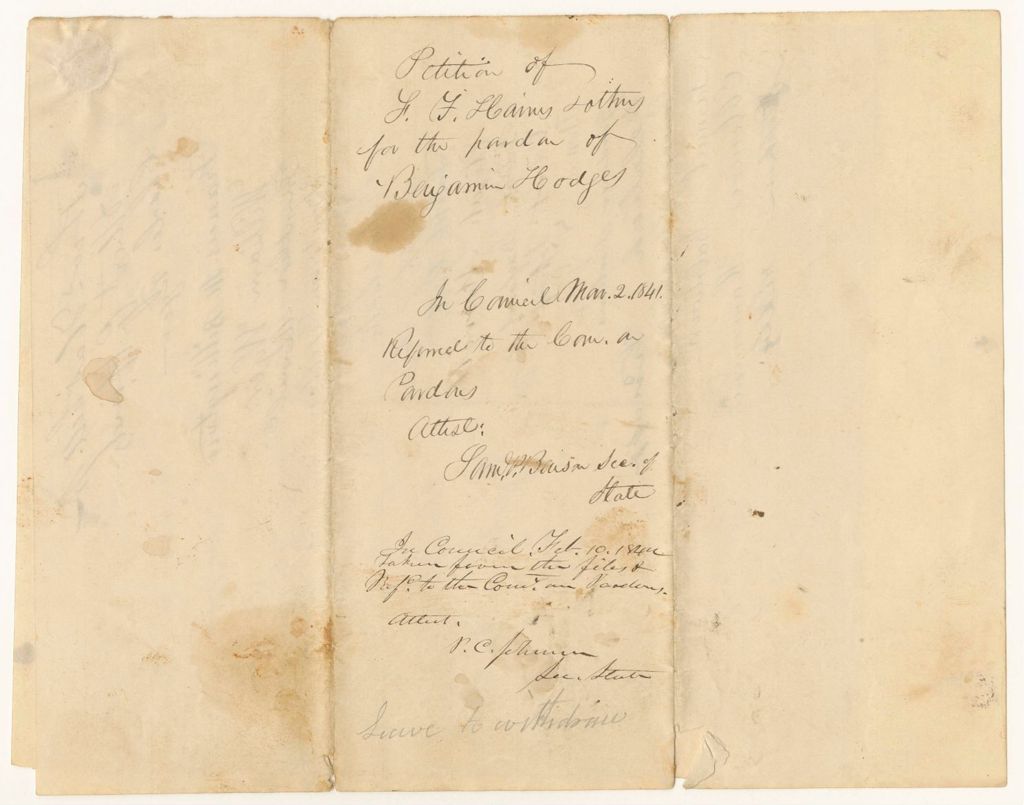 Petition of
F. F. Haines & others
for the pardon of
Benjamin Hodges
In Council Mar. 2. 1841.
Referred to the Com. on
Pardons
Attest:
Saml. P. Benson Sec. of
State
In Council. Feb. 10. 1842
taken from the files &
Refd. to the Comt. on Pardons.
Attest.
P. C. Johnson
Sec. State
Leave to withdraw